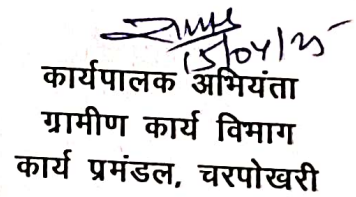 15/04/25
कार्यपालक अभियंता
ग्रामीण कार्य विभाग
कार्य प्रमंडल, चरपोखरी